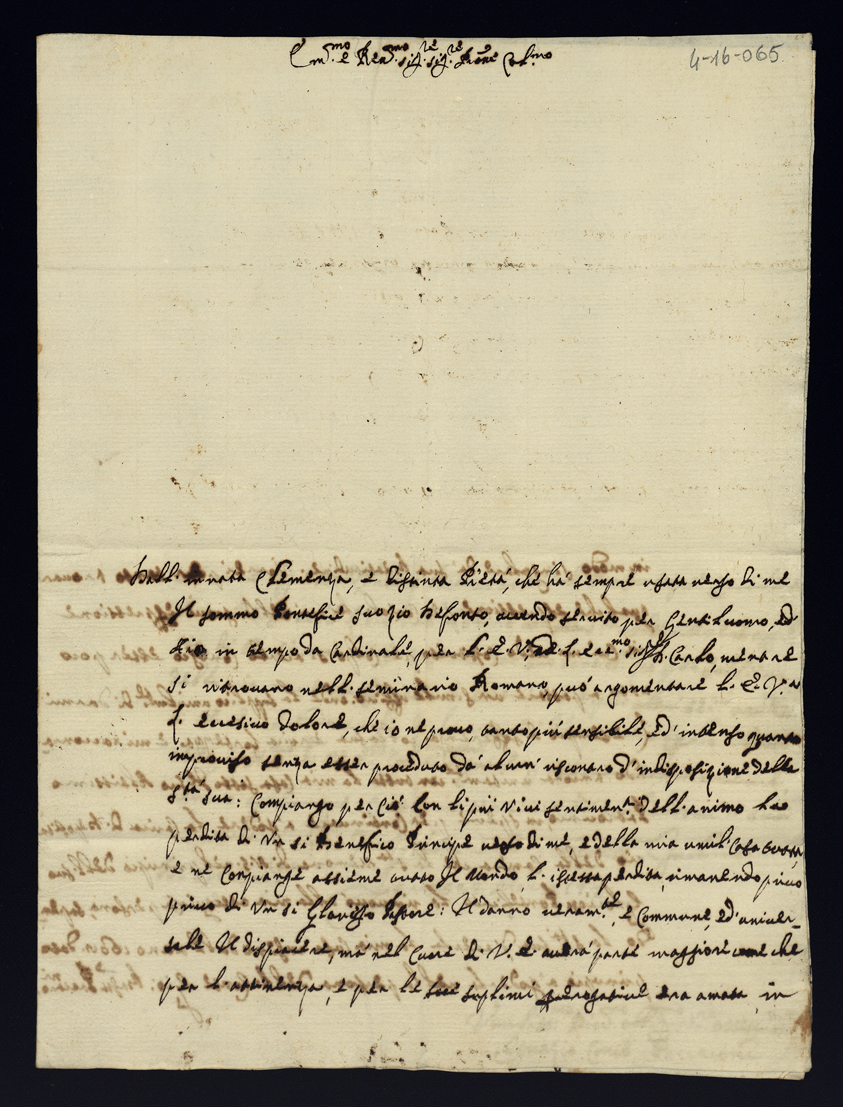 Em.mo e Rev.mo Sig.re Sig.re Pron̄e Col.mo
4-16-065
Dall'innata Clemenza, e distinta Pietà, che hà sempre usata verso di me
Il sommo Pontefice suo zio defonto, avendo servito per Gentiluomo, ed
Aio in tempo da Cardinale, per L'E. V., e L'ecc.mo Sig. D. Carlo, mentre
si ritrovavano nell seminario Romano, può argomentare l'E. V.a
L'eccesivo dolore, che io ne provo, tanto più sensibile, ed' intenso quanto
improviso senza esser preceduto dà alcun' riscontro d'indisposizione della
S.tà sua: Compiango perciò con li più vivi sentimen.ti dell'animo la
perdita di Un si Benefico Principe verso di me, e della mia umil Casa tutta,
e ne Compiange assieme tutto Il Mondo, l'istessa perdita, rimanendo privo
privo di Un si Glorioso Pastore: Il danno veram.te, è Commune, ed' univer-
sale Il dispiacere, mà nel Cuore di V. E. averà parte maggiore che
per l'attinenza, e per le sue soplimi prerogative era amata in